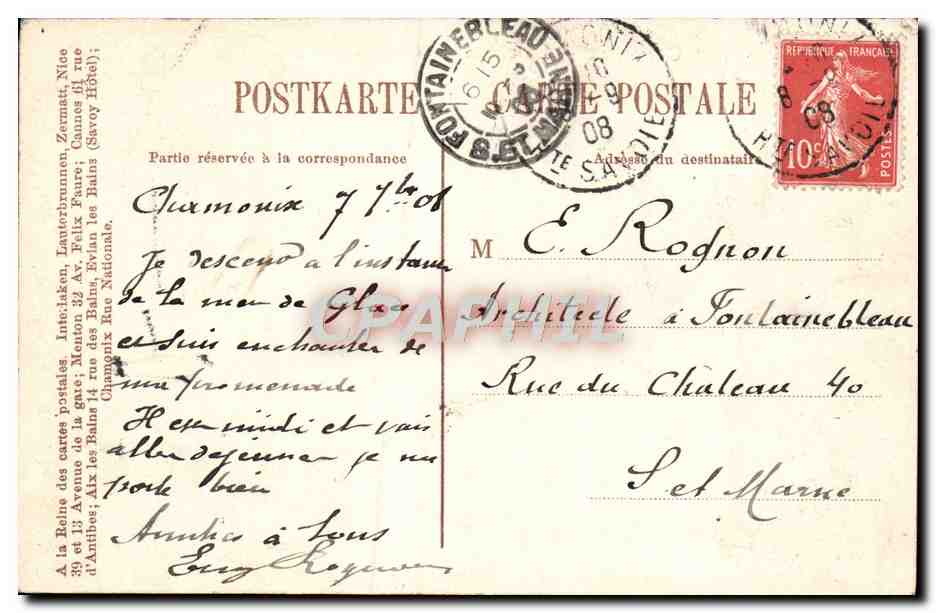 A la Reine des cartes postales. Interlaken, Lauterbrunnen, Zermatt, Nice
39 et 13 Avenue de la gare; Menton 32 Av. Felix Faure; Cannes 61 rue
d'Antibes; Aix les Bains 14 rue des Bains, Evian les Bains (Savoy Hôtel);
Chamonix Rue Nationale.
POSTKARTE - CARTE POSTALE
Partie réservée à la correspondance
Adresse du destinataire
FONTAINEBLEAU
6 15
S. ET MARNE
08
HTE SAVOIE
REPUBLIQUE FRANÇAISE
10c
POSTES
08
HTE SAVOIE
Chamonix 7 7bre 08
Je descend à l'instant
de la mer de Glace
et suis enchanter de
ma promenade
Il est midi et vais
aller dejeuner je me
porte bien
Amitiés à tous
M E. Rognon
Architecte à Fontainebleau
Rue du Chateau 40
S et Marne
CPAPHIL